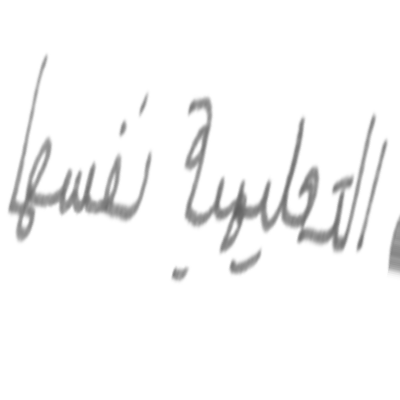 التعليمية نفسها